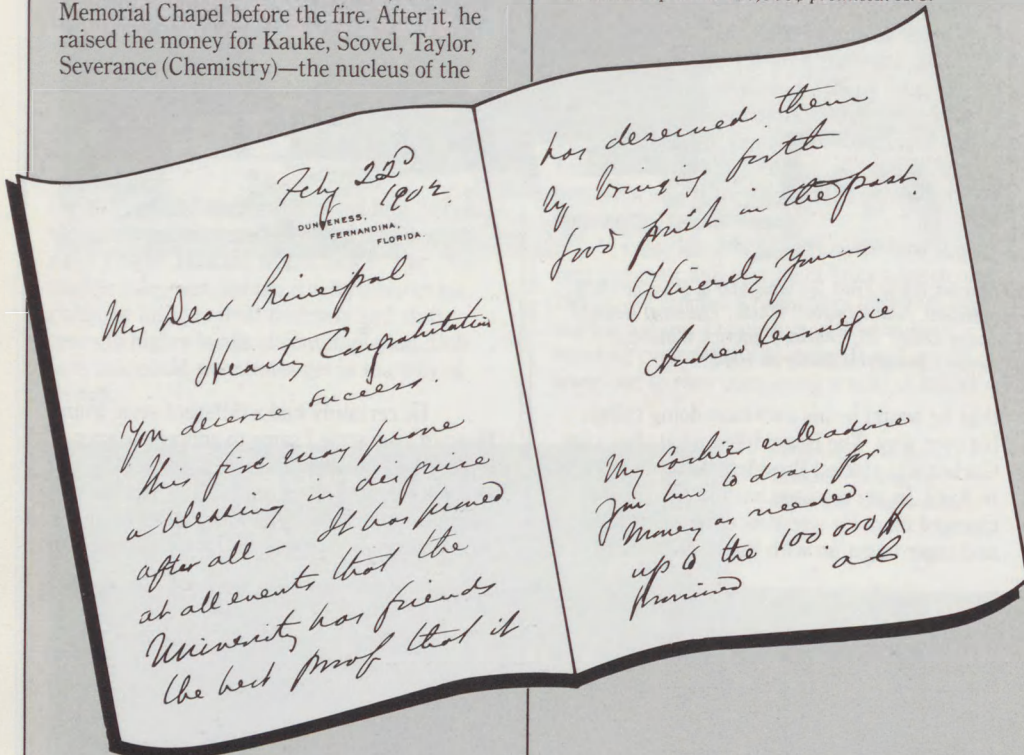 Memorial Chapel before the fire. After it, he
raised the money for Kauke, Scovel, Taylor,
Severance (Chemistry)—the nucleus of the
Feby 22d
1902.
DUNGENESS,
FERNANDINA,
FLORIDA.
My Dear Principal
Hearty Congratulations
You deserve success.
This fire may prove
a blessing in disguise
after all — It has proved
at all events that the
University has friends
the best proof that it
has deserved them
by bringing forth
good fruit in the past.
Sincerely Yours
Andrew Carnegie
My Cashier will advise
you how to draw for
money as needed.
up to the 100 000 $
promised
AC